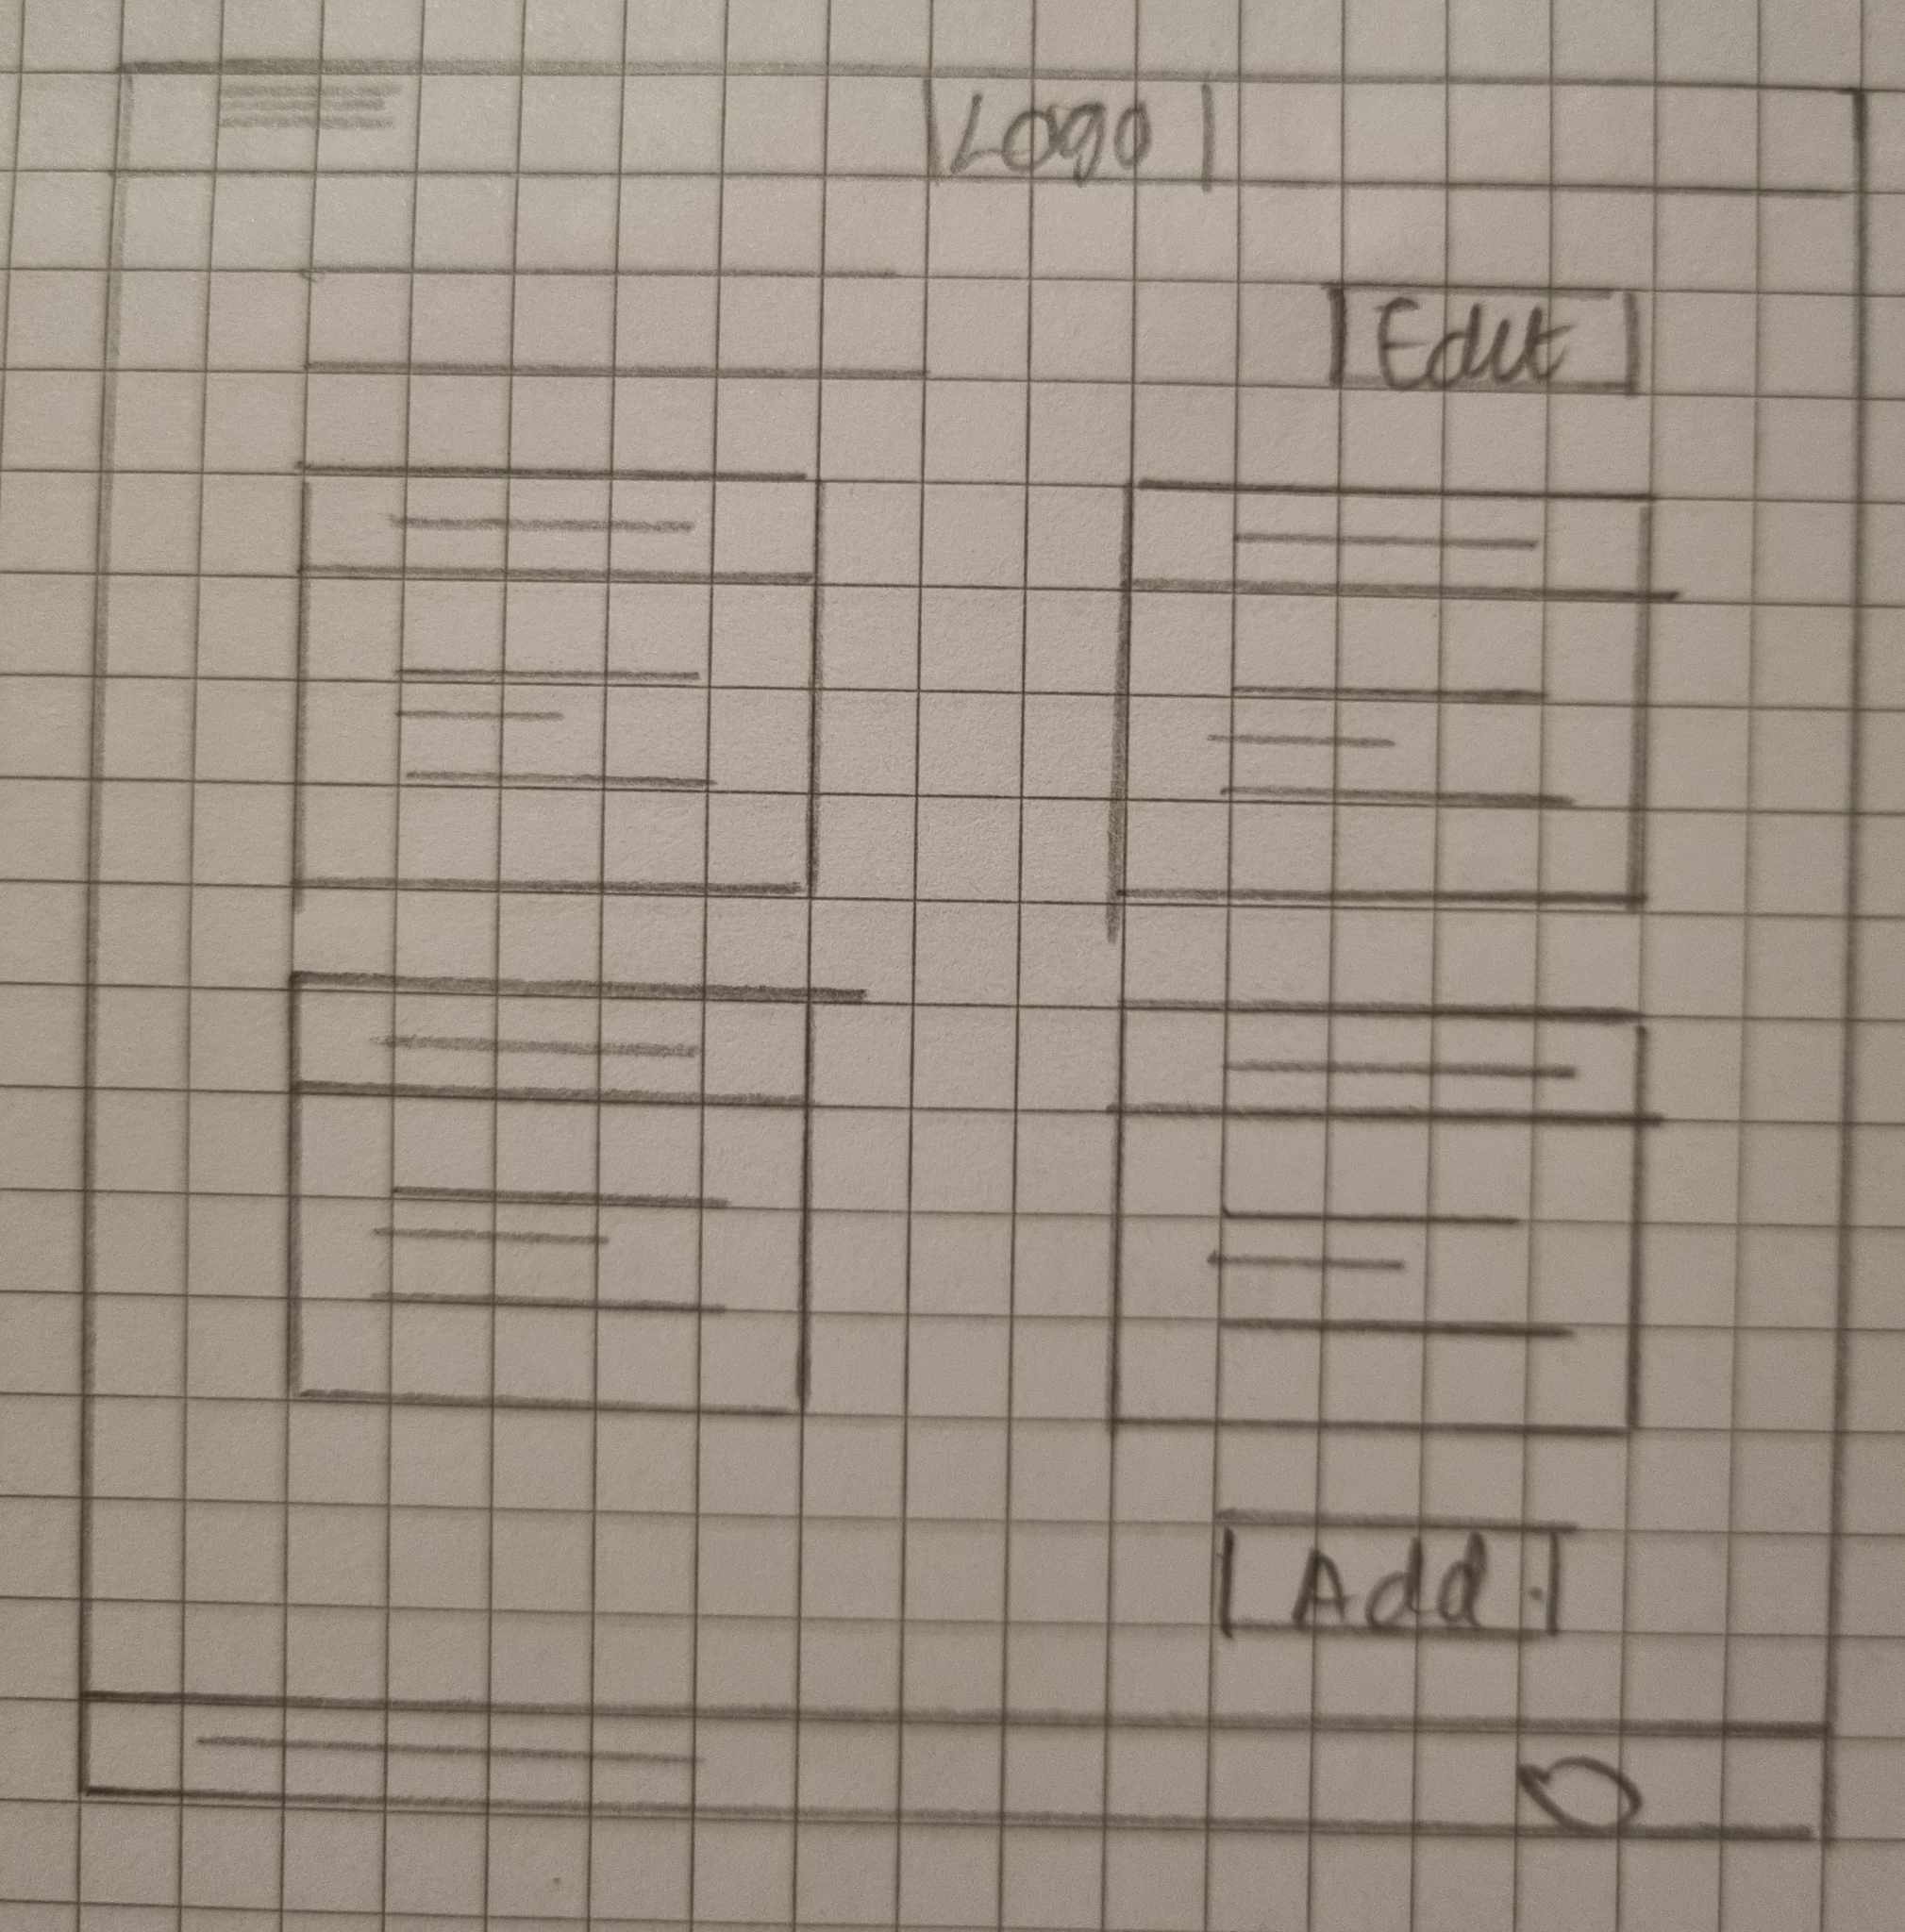 Logo
Edit
Add